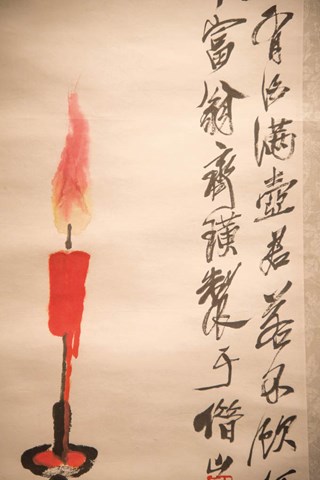 有酒滿壺君若不飲
富翁齊璜製于借山